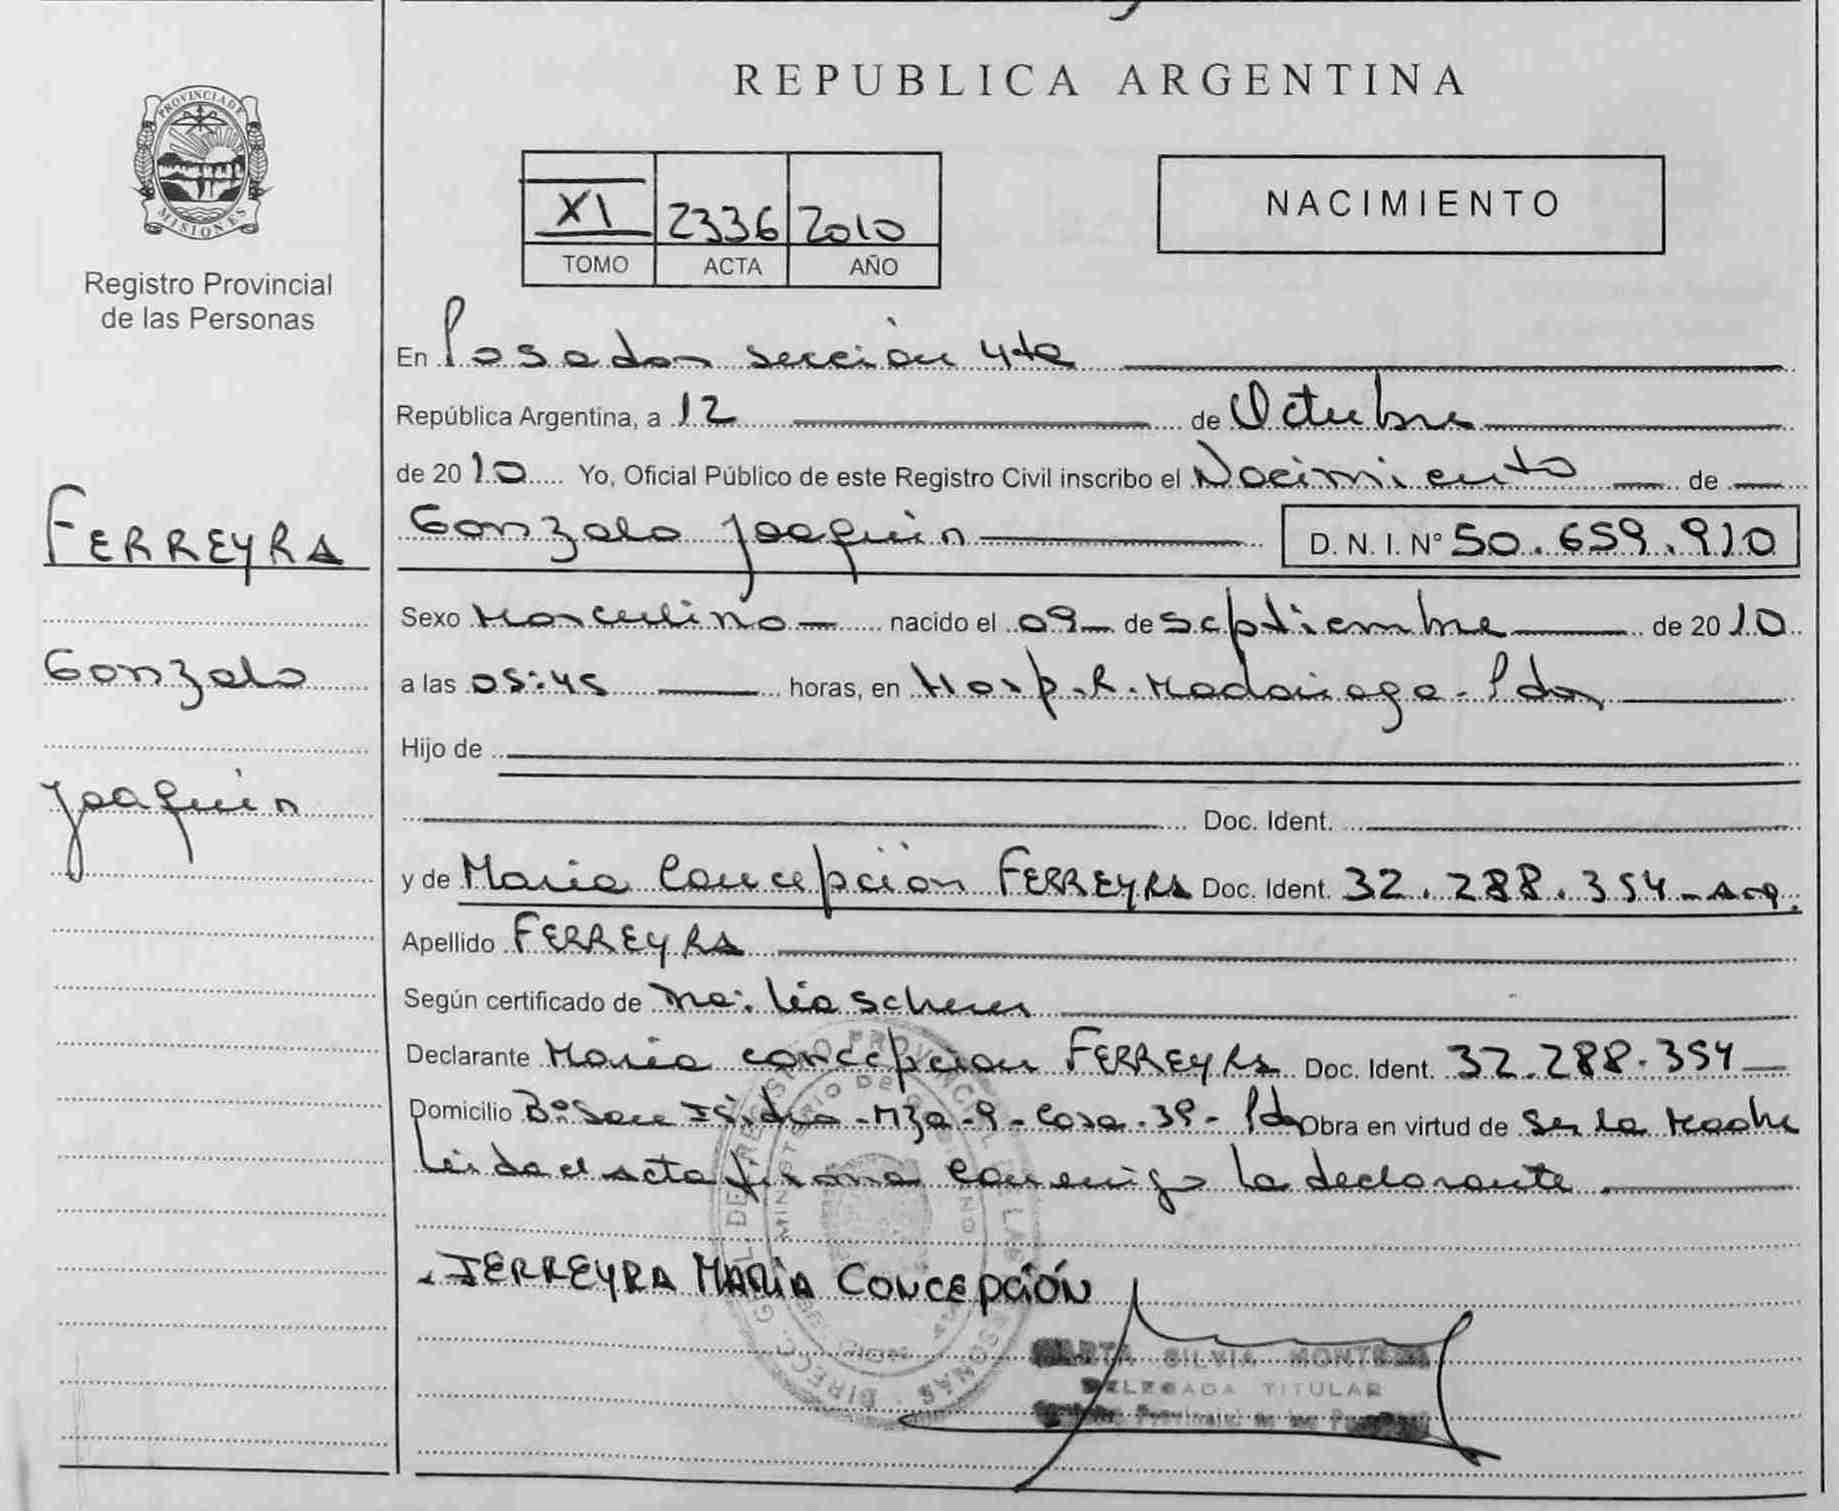 REPUBLICA ARGENTINA
PROVINCIA DE MISIONES
Registro Provincial
de las Personas
XI 2336 2010
TOMO ACTA AÑO
NACIMIENTO
En Posadas sección 4ta
República Argentina, a 12 de Octubre
de 2010 Yo, Oficial Público de este Registro Civil inscribo el Nacimiento de
Gonzalo Joaquin D. N. I. N° 50.659.910
FERREYRA
Gonzalo
Joaquin
Sexo Masculino nacido el 09 de Septiembre de 2010
a las 05:45 horas, en Hosp. R. Madariaga - Pdas
Hijo de
Doc. Ident.
y de Maria Concepción FERREYRA Doc. Ident. 32.288.354 - arg.
Apellido FERREYRA
Según certificado de
Declarante Maria concepcion FERREYRA Doc. Ident. 32.288.354
Domicilio B° San Isidro - Mza - 9 - Casa - 39 - Pdas Obra en virtud de Ser la Madre
Leida el acta firma conmigo la declarante.
FERREYRA MARIA CONCEPCIÓN
SILVIA
DELEGADA TITULAR